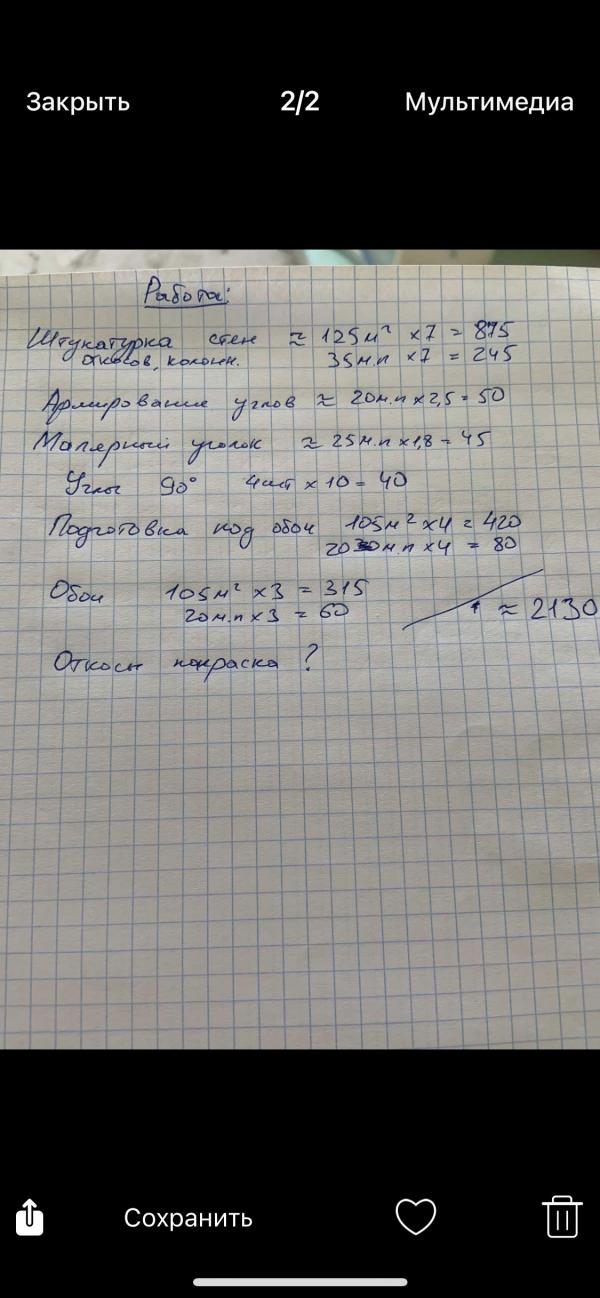 Закрыть 2/2 Мультимедиа
Работа:
Штукатурка стен ≈ 125м² x7 = 875
откосов, колонн. 35м.п x7 = 245
Армирование углов ≈ 20м.п x2,5 = 50
Малярный уголок ≈ 25м.п x1,8 = 45
Углы 90° 4шт x 10 = 40
Подготовка под обои 105м² x4 = 420
20м.п x4 = 80
Обои 105м² x3 = 315
20м.п x3 = 60
≈ 2130
Откосы покраска ?
Сохранить